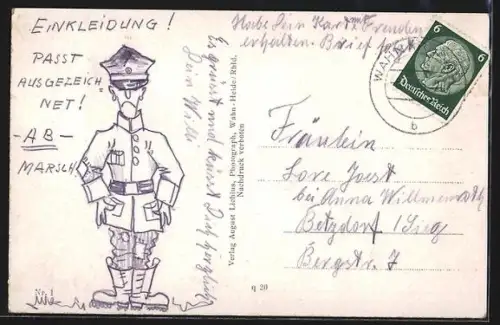 EINKLEIDUNG!
PASST
AUSGEZEICH
NET!
-AB-
MARSCH
Nr. 1
Habe Dein Karte mit Freuden
erhalten. Brief folgt
Es grüsst und küsst Dich herzlich
Dein Willi
Verlag August Liethius, Photograph, Wahn-Heide/Rhld.
Nachdruck verboten
q 20
WAHN
b
6 6
Deutsches Reich
Fräulein
Lore Joest
bei Anna
Betzdorf/Sieg
Bergstr. 7